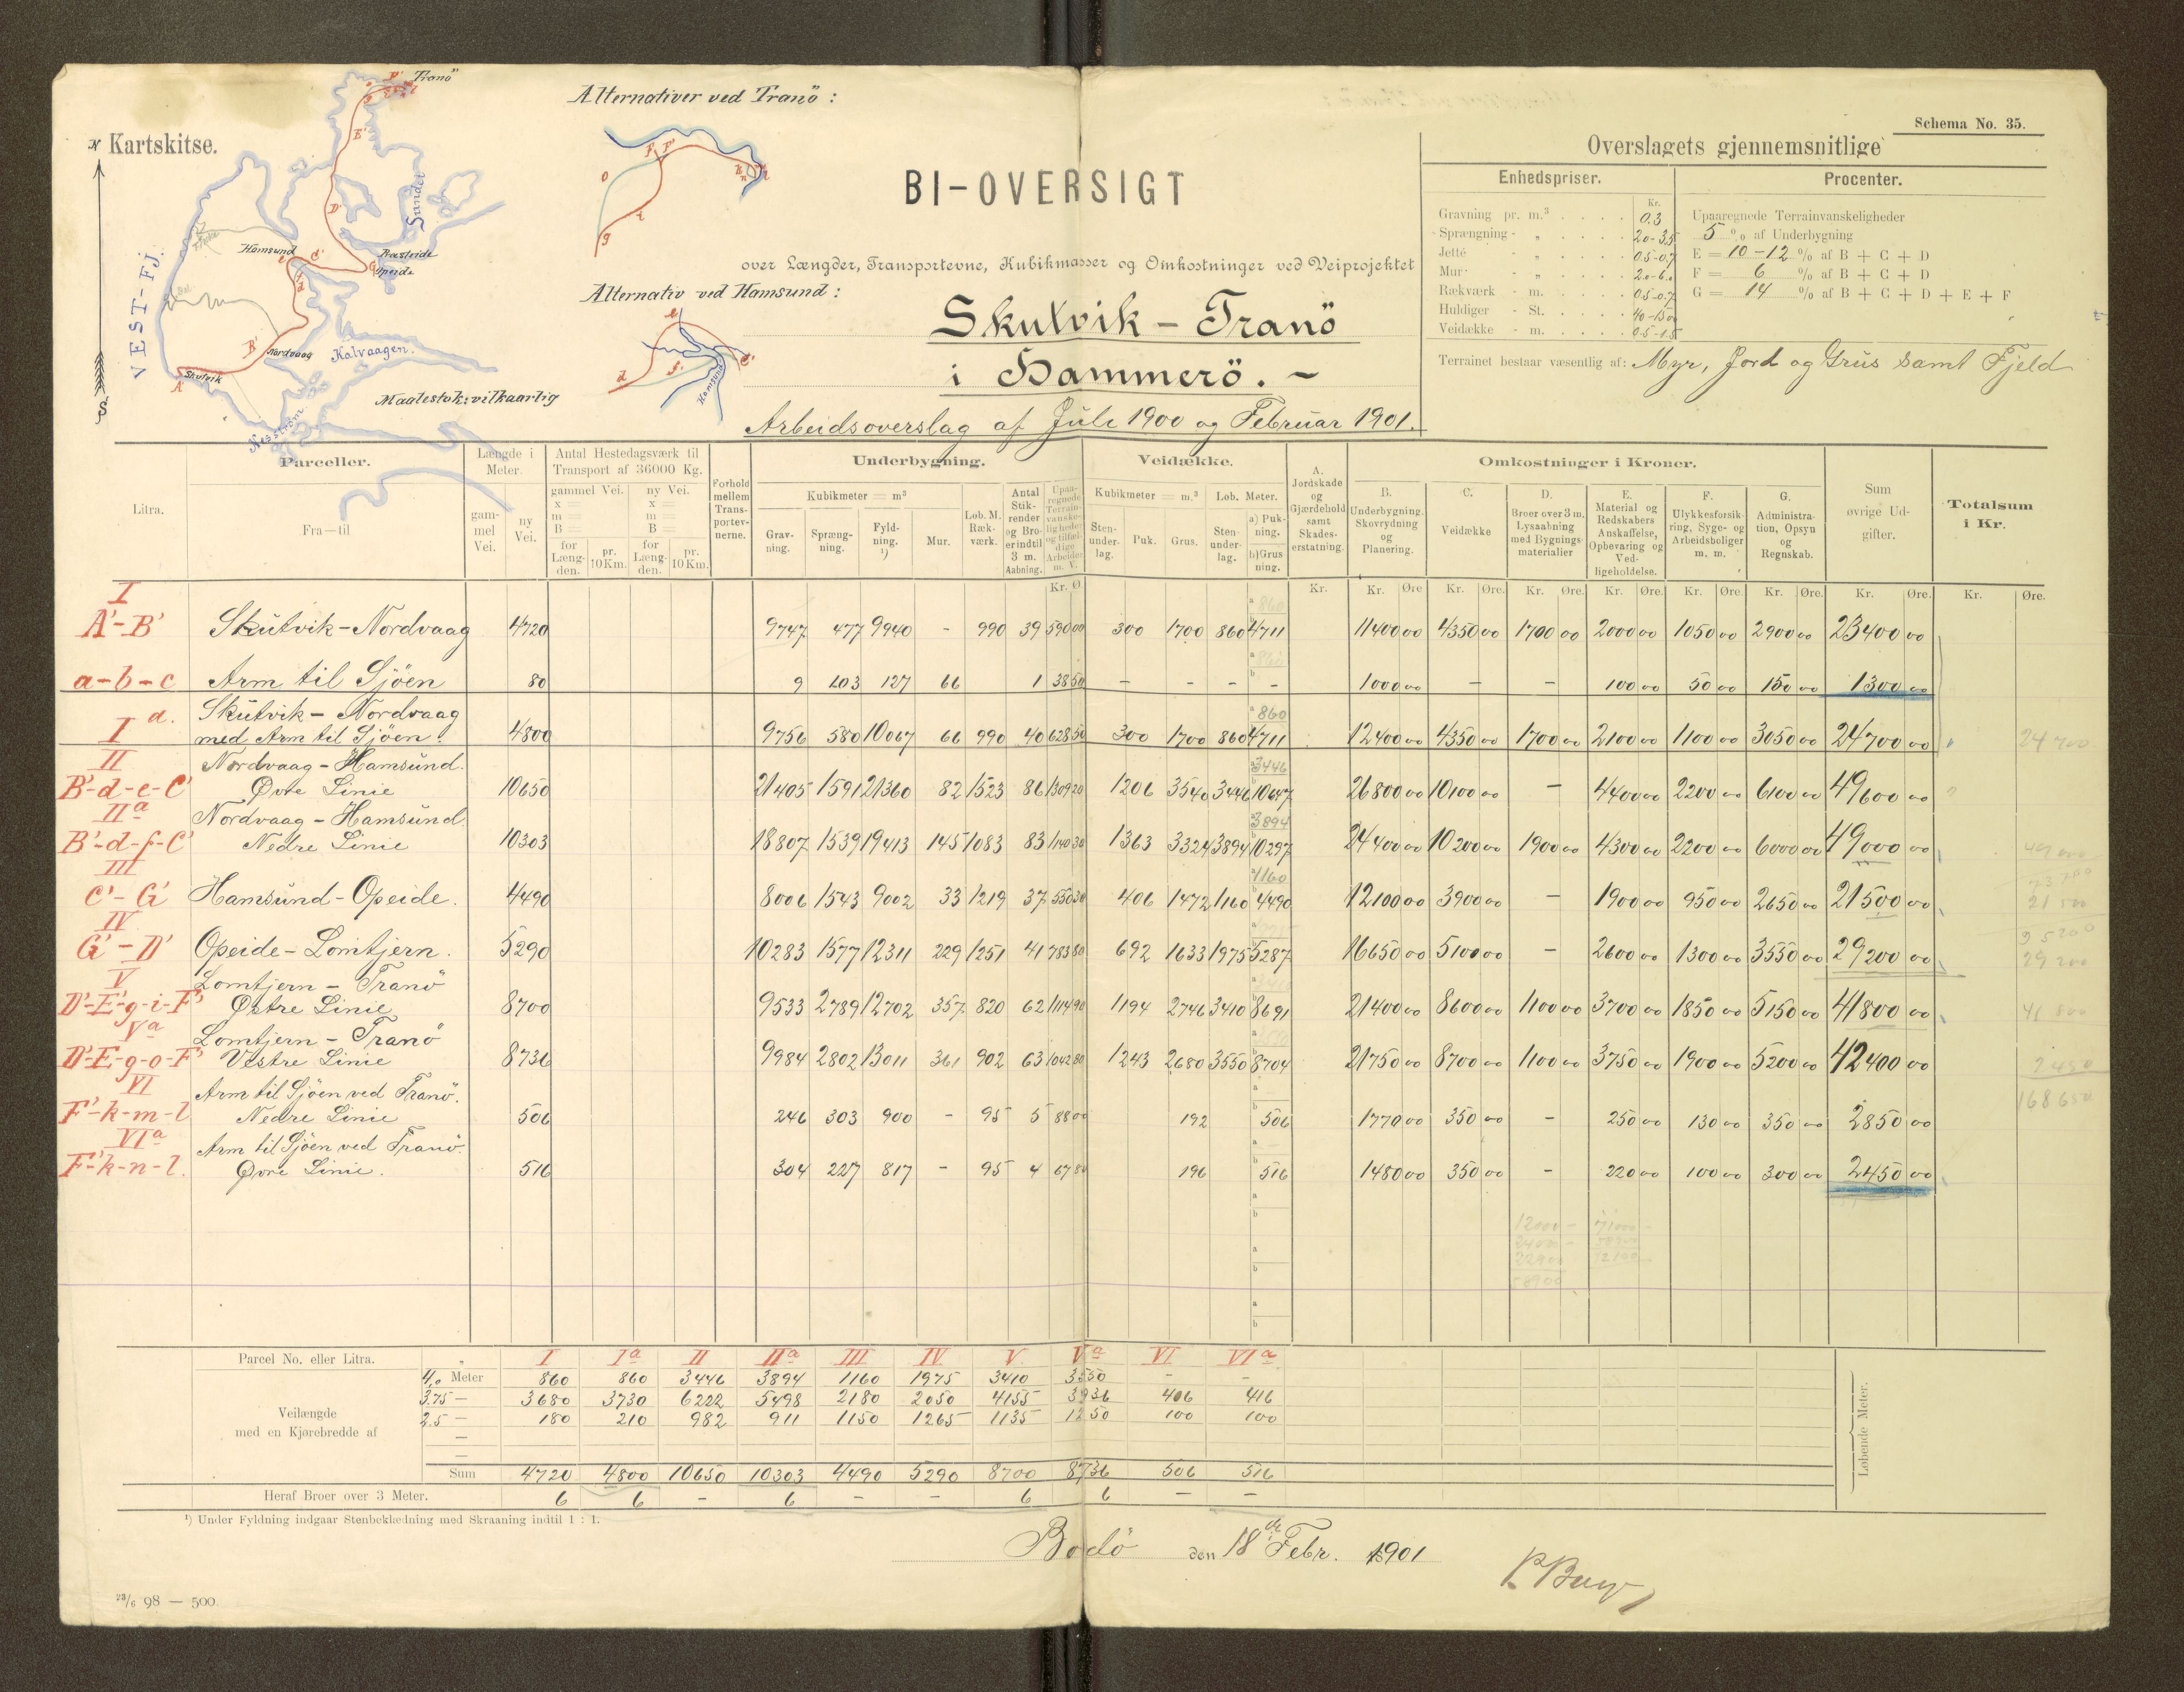 Kartskitse.
N
S
VEST-FJ.
Tranö
Sundet
Hamsund
Præsteide
Opeide
Nordvaag
Kalvaagen.
Skutvik
Nesström
Maalestok: vilkaarlig
Alternativer ved Tranö:
Alternativ ved Hamsund:
Hamsund
BI-OVERSIGT
over Længder, Transportevne, Kubikmasser og Omkostninger ved Veiprojektet
Skutvik - Tranö
i Hammerö. -
Arbeidsoverslag af Juli 1900 og Februar 1901.
Schema No. 35.
Overslagets gjennemsnitlige
Enhedspriser.
Kr.
Gravning pr. m.³ 0.3
Sprængning - „ 2.0-3.5
Jetté - „ 0.5-0.7
Mur - „ 2.0-6.0
Rækværk - m. 0.5-0.7
Huldiger - St. 40-150
Veidække - m. 0.5-1.5
Procenter.
Upaaregnede Terrainvanskeligheder
5 % af Underbygning
E = 10-12 % af B + C + D
F = 6 % af B + C + D
G = 14 % af B + C + D + E + F
Terrainet bestaar væsentlig af: Myr, Jord og Grus samt Fjeld
Litra.
Parceller.
Fra—til
Længde i Meter.
gammel Vei.
ny Vei.
Antal Hestedagsværk til Transport af 36000 Kg.
gammel Vei. ny Vei.
x = x =
m = m =
B = B =
for Længden. pr. 10 Km. for Længden. pr. 10 Km.
Forhold mellem Transportevnerne.
Underbygning.
Kubikmeter = m³
Gravning. Sprængning. Fyldning. ¹) Mur.
Løb. M. Rækværk.
Antal Stikrender og Broer indtil 3 m. Aabning.
Upaaregnede Terrainvanskeligheder og tilfældige Arbeider m. V.
Veidække.
Kubikmeter = m.³ Løb. Meter.
Stenunderlag. Puk. Grus. Stenunderlag. a) Pukning. b) Grusning.
A. Jordskade og Gjærdehold samt Skadeserstatning.
Omkostninger i Kroner.
B. Underbygning. Skovrydning og Planering.
C. Veidække
D. Broer over 3 m. Lysaabning med Bygningsmaterialier
E. Material og Redskabers Anskaffelse, Opbevaring og Vedligeholdelse.
F. Ulykkesforsikring, Syge- og Arbeidsboliger m. m.
G. Administration, Opsyn og Regnskab.
Sum øvrige Udgifter.
Totalsum i Kr.
Kr. Ø. Kr. Kr. Øre Kr. Øre. Kr. Øre. Kr. Øre. Kr. Øre. Kr. Øre. Kr. Øre. Kr. Øre.
I
A'-B' Skutvik-Nordvaag 4720 9747 477 9940 - 990 39 590 00 300 1700 860 4711 11400 00 4350 00 1700 00 2000 00 1050 00 2900 00 23400 00
a-b-c Arm til Sjöen 80 9 103 127 66 1 38 50 - - - - 1000 00 - - 100 00 50 00 150 00 1300 00
Skutvik - Nordvaag
I a. med Arm til Sjöen. 4800 9756 580 10067 66 990 40 628 50 300 1700 860 860 4711 12400 00 4350 00 1700 00 2100 00 1100 00 3050 00 24700 00 24 700
II Nordvaag - Hamsund.
B'-d-e-C' Övre Linie 10650 21405 1591 21360 82 1523 86 1309 20 1206 3540 3446 3446 10647 26800 00 10100 00 - 4400 00 2200 00 6100 00 49600 00
IIa Nordvaag - Hamsund.
B'-d-f-C' Nedre Linie 10303 18807 1539 19413 145 1083 83 1140 30 1363 3324 3894 3894 10297 24400 00 10200 00 1900 00 4300 00 2200 00 6000 00 49000 00 49 000
III
C'-G' Hamsund-Opeide. 4490 8006 1543 9002 33 1219 37 550 30 406 1472 1160 1160 4490 12100 00 3900 00 - 1900 00 950 00 2650 00 21500 00 21 500
IV
G'-D' Opeide-Lomtjern. 5290 10283 1577 12311 229 1251 41 783 80 692 1633 1975 5287 16650 00 5100 00 - 2600 00 1300 00 3550 00 29200 00 29 200
V Lomtjern - Tranö
D'-E'-g-i-F' Östre Linie 8700 9533 2789 12702 357 820 62 1114 90 1194 2746 3410 8691 21400 00 8600 00 1100 00 3700 00 1850 00 5150 00 41800 00 41 800
Va Lomtjern - Tranö
D'-E-g-o-F' Vestre Linie 8736 9984 2802 13011 361 902 63 1042 80 1243 2680 3550 8704 21750 00 8700 00 1100 00 3750 00 1900 00 5200 00 42400 00 2450
VI Arm til Sjöen ved Tranö.
F'-k-m-l Nedre Linie 506 246 303 900 - 95 5 88 00 192 506 1770 00 350 00 - 250 00 130 00 350 00 2850 00 168650
VIa Arm til Sjöen ved Tranö.
F'-k-n-l. Övre Linie. 516 304 227 817 - 95 4 67 80 196 516 1480 00 350 00 - 220 00 100 00 300 00 2450 00
Parcel No. eller Litra. „ I Ia II IIa III IV V Va VI VIa
Veilængde med en Kjørebredde af
4,0 Meter 860 860 3446 3894 1160 1975 3410 3550 - -
3.75 — 3680 3730 6222 5498 2180 2050 4155 3936 406 416
2.5 — 180 210 982 911 1150 1265 1135 1250 100 100
Sum 4720 4800 10650 10303 4490 5290 8700 8736 506 516
Heraf Broer over 3 Meter. 6 6 - 6 - - 6 6 - -
Løbende Meter.
¹) Under Fyldning indgaar Stenbeklædning med Skraaning indtil 1 : 1.
Bodö den 18de Febr. 1901
23/6 98 — 500.